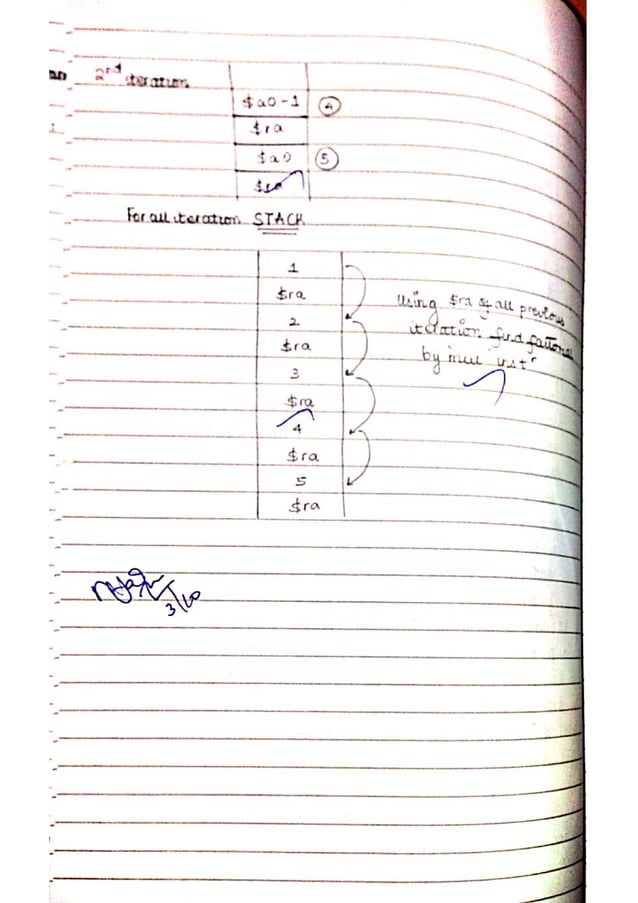 2nd iteration
$a0-1 4
$ra
$a0 5
$ra
For all iteration STACK
1
$ra
2
$ra
3
$ra
4
$ra
5
$ra
Using $ra of all previous
iteration find factorial
by mul instr
3/10